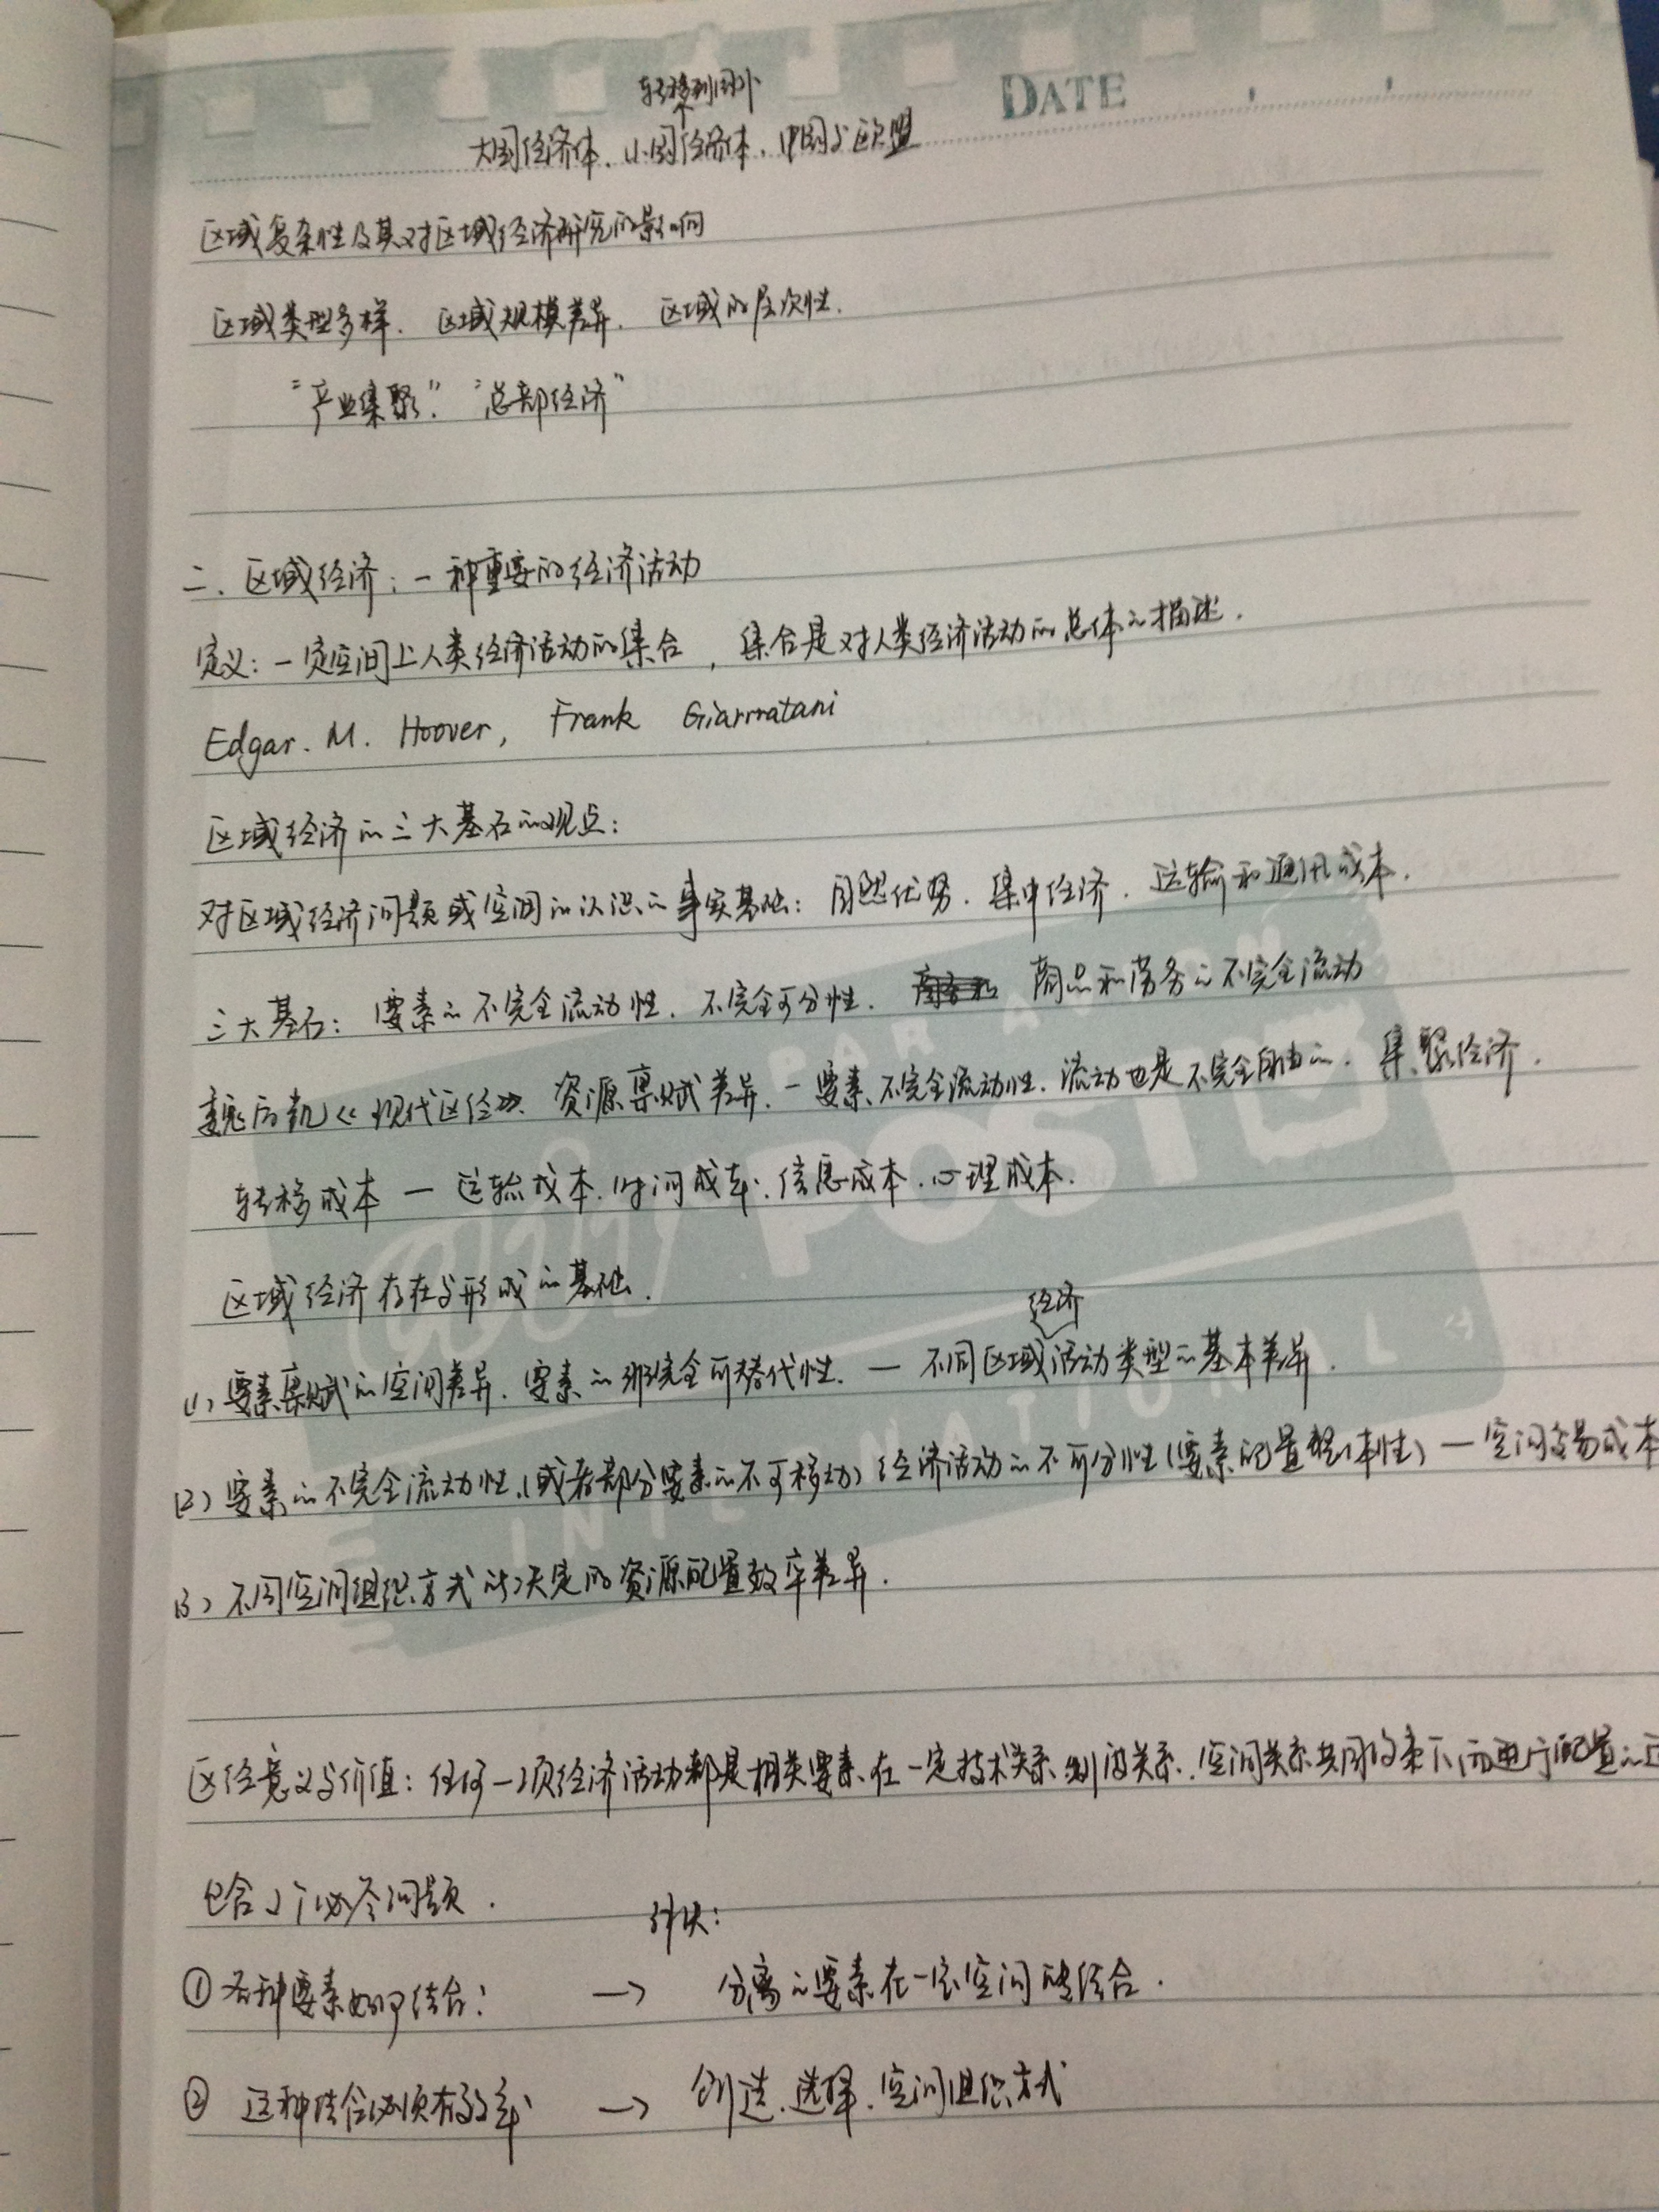 转移到国外
DATE
大国经济体、小国经济体、中国与欧盟
区域复杂性及其对区域经济研究的影响
区域类型多样. 区域规模差异. 区域的层次性.
“产业集聚”. “总部经济”
二. 区域经济: 一种重要的经济活动
定义: 一定空间上人类经济活动的集合, 集合是对人类经济活动的总体的描述.
Edgar. M. Hoover, Frank Giarratani
区域经济的三大基石的观点:
对区域经济问题或空间的认识的事实基础: 自然优势. 集中经济. 运输和通讯成本.
三大基石: 要素的不完全流动性. 不完全可分性. 商品和劳务的不完全流动
魏后凯《现代区经》. 资源禀赋差异. — 要素不完全流动性. 流动也是不完全自由的. 集聚经济.
转移成本 — 运输成本. 时间成本. 信息成本. 心理成本.
区域经济存在与形成的基础.
经济
(1) 要素禀赋的空间差异. 要素的非完全可替代性. — 不同区域活动类型的基本差异.
(2) 要素的不完全流动性. (或者部分要素的不可移动) 经济活动的不可分性 (要素配置整体性) — 空间交易成本
(3) 不同空间组织方式所决定的资源配置效率差异.
区经意义与价值: 任何一项经济活动都是相关要素在一定技术关系. 制度关系. 空间关系共同约束下而进行配置的
包含 个必答问题.
①各种要素如何结合: → 分离的要素在一定空间 结合.
② 这种结合必须有效率 → 创造. 选择. 空间组织方式
EAR AT OWN
POST
INTERNATIONAL